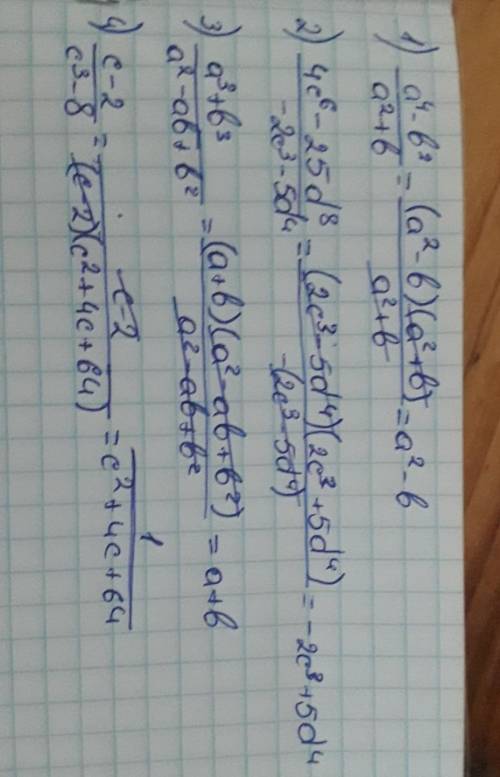 1) (a⁴-b²)/(a²+b) = ((a²-b)(a²+b))/(a²+b) = a²-b
2) (4c⁶-25d⁸)/(-2c³-5d⁴) = ((2c³-5d⁴)(2c³+5d⁴))/(-(2c³-5d⁴)) = -2c³+5d⁴
3) (a³+b³)/(a²-ab+b²) = ((a+b)(a²-ab+b²))/(a²-ab+b²) = a+b
4) (c-2)/(c³-8) = (c-2)/((c-2)(c²+4c+64)) = 1/(c²+4c+64)